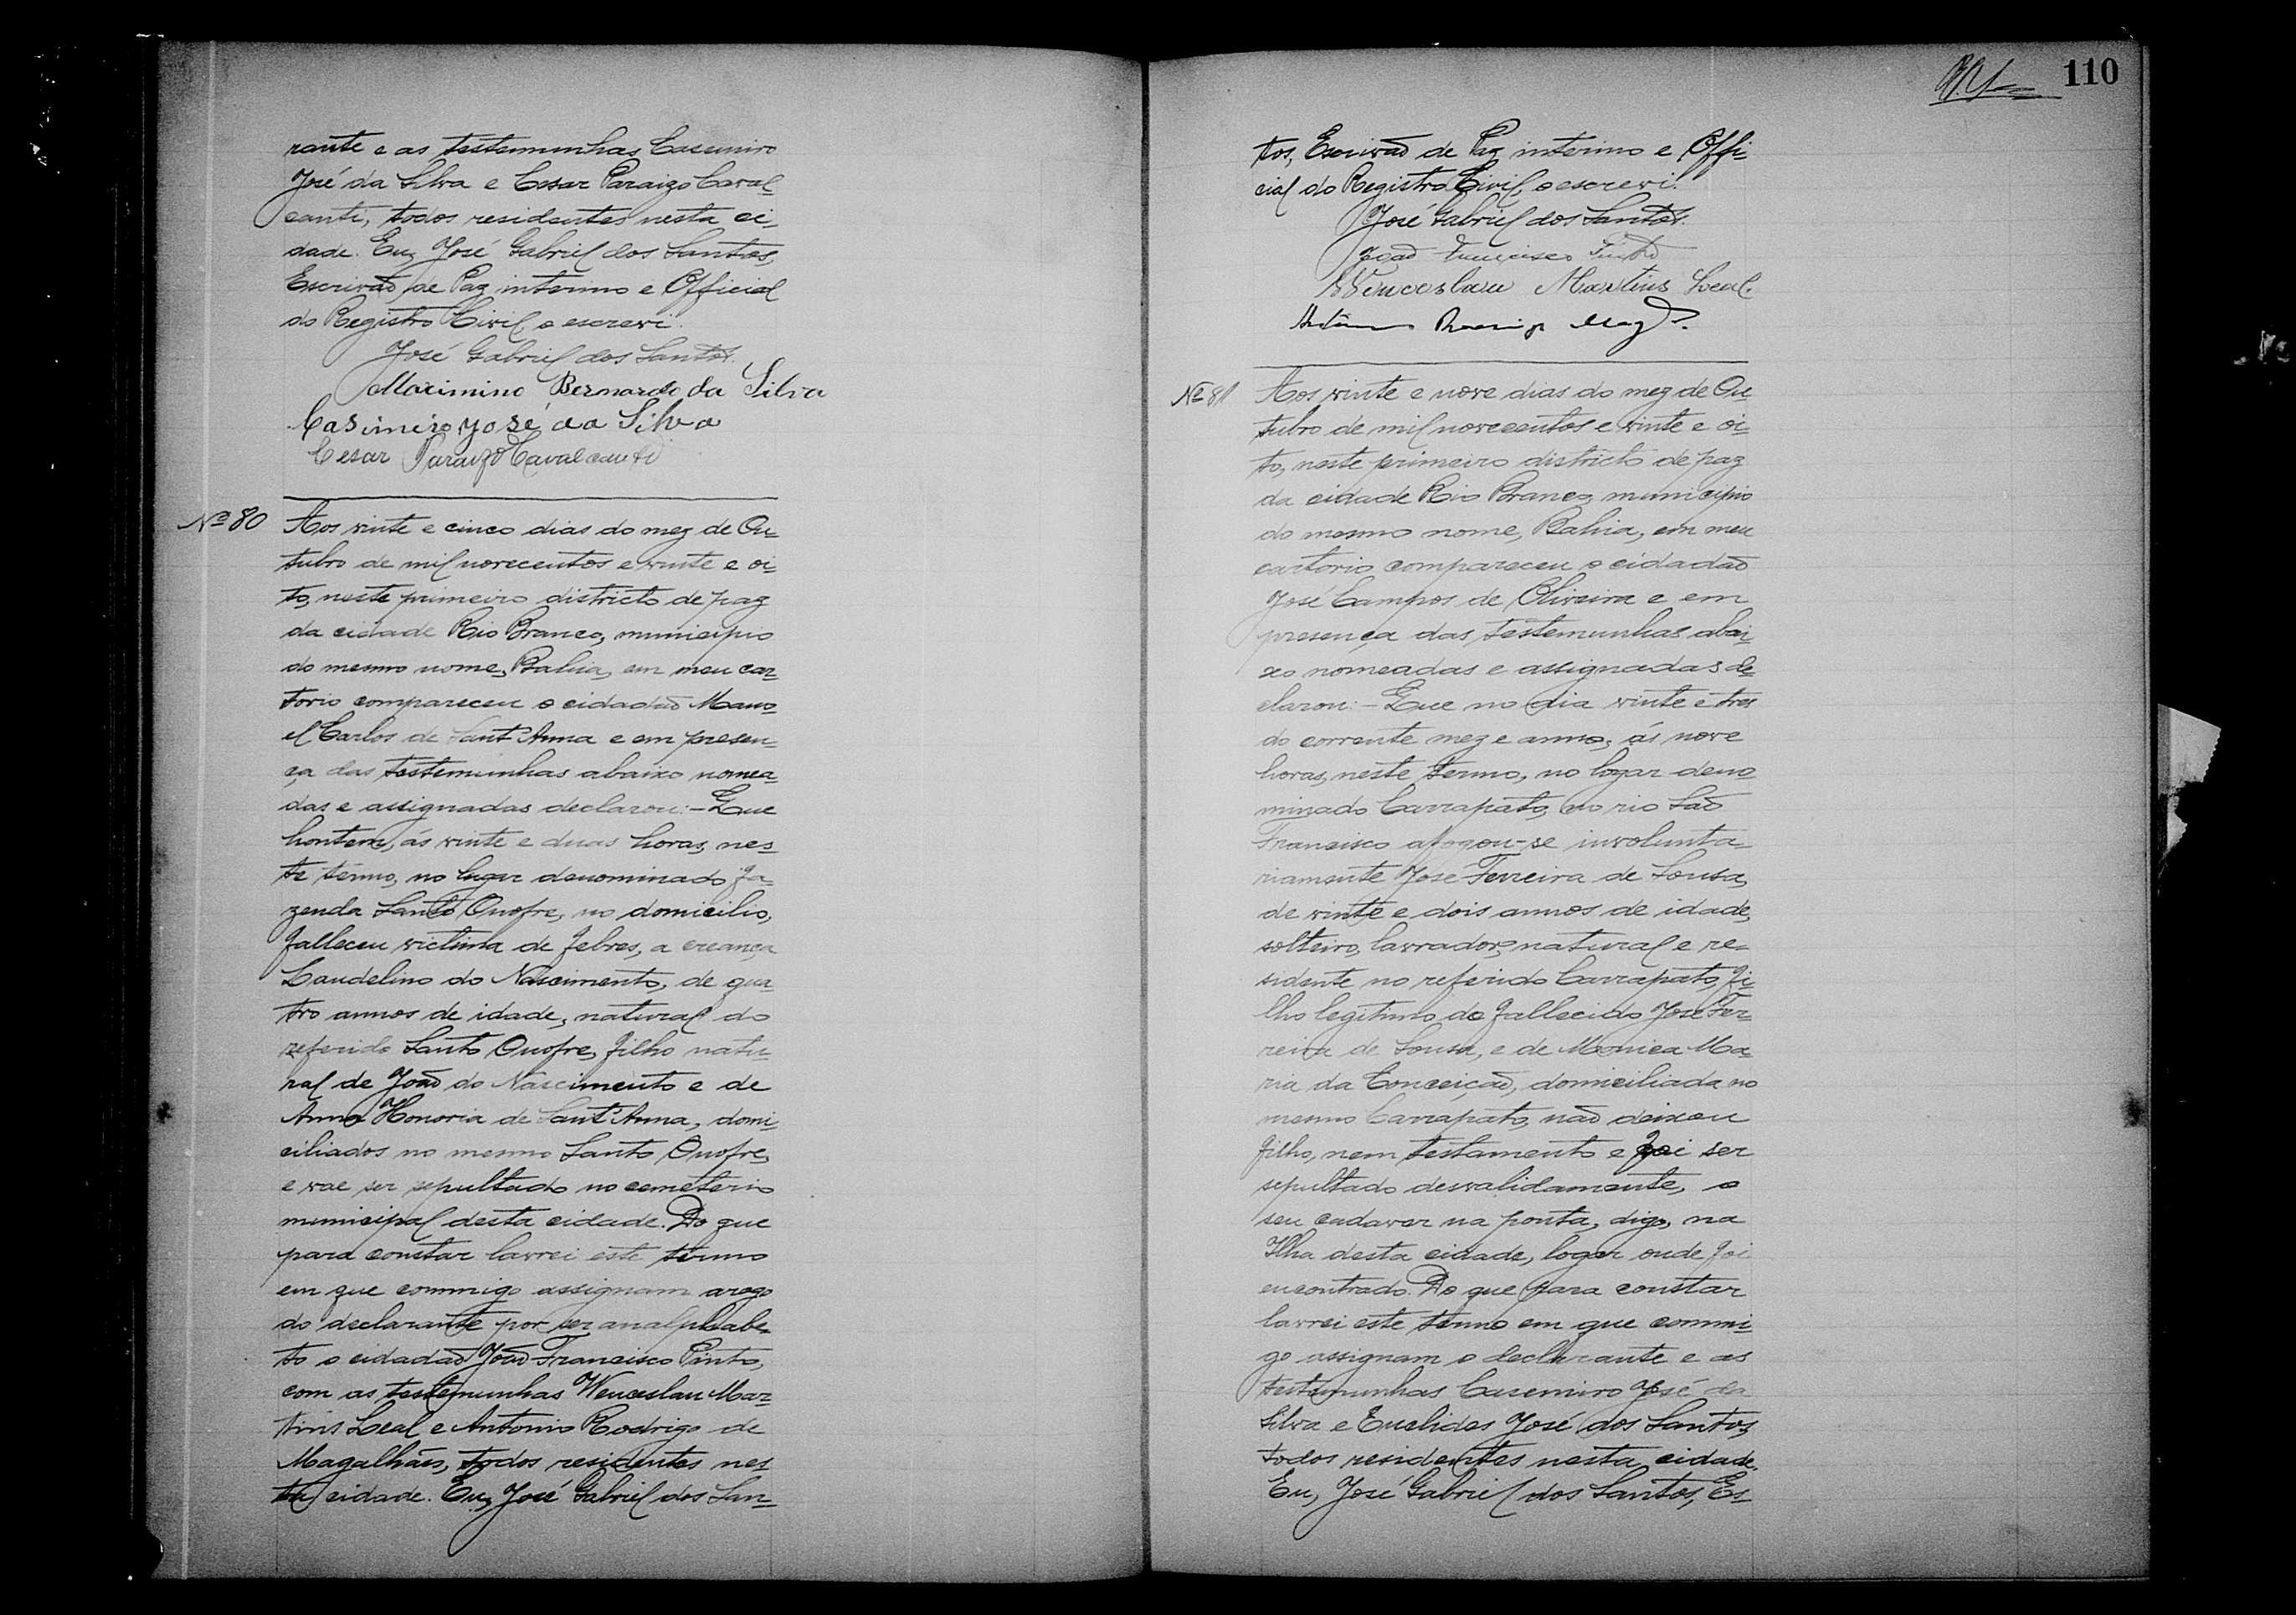 rante e as testemunhas Casemiro
José da Silva e Cesar Paraizo Caval-
canti, todos residentes nesta ci-
dade. Eu, José Gabriel dos Santos,
Escrivaõ de Paz interino e Official
do Registro Civil, o escrevi.
José Gabriel dos Santos.
Maximino Bernardo da Silva
Casimiro José da Silva
Cesar Paraizo Cavalcanti
Nº 80
Aos vinte e cinco dias do mez de Ou-
tubro de mil novecentos e vinte e oi-
to, neste primeiro districto de paz
da cidade Rio Branco, municipio
do mesmo nome, Bahia, em meu car-
torio compareceu o cidadaõ Mano-
el Carlos de Sant'Anna e em presen-
ça das testemunhas abaixo nomea-
das e assignadas declarou:- Que
hontem, ás vinte e duas horas, nes-
te termo, no lugar denominado fa-
zenda Santo Onofre, no domicilio,
falleceu victima de febres, a creança
Laudelino do Nascimento, de qua-
tro annos de idade, natural do
referido Santo Onofre, filho natu-
ral de Joaõ do Nascimento e de
Anna Honoria de Sant'Anna, domi-
ciliados no mesmo Santo Onofre,
e vae ser sepultado no cemeterio
municipal desta cidade. Do que
para constar lavrei este termo
em que commigo assignam arogo
do declarante por ser analphabe-
to o cidadaõ Joaõ Francisco Pinto,
com as testemunhas Wenceslau Mar-
tins Leal e Antonio Rodrigo de
Magalhães, todos residentes nes-
ta cidade. Eu, José Gabriel dos San-
110
tos, Escrivaõ de Paz interino e Offi-
cial do Registro Civil, o escrevi.
José Gabriel dos Santos.
Joaõ Francisco Pinto
Wenceslau Martins Leal.
Nº 81
Aos vinte e nove dias do mez de Ou-
tubro de mil novecentos e vinte e oi-
to, neste primeiro districto de paz
da cidade Rio Branco, municipio
do mesmo nome, Bahia, em meu
cartorio compareceu o cidadaõ
José Campos de Oliveira e em
presença das testemunhas abai-
xo nomeadas e assignadas de-
clarou:- Que no dia vinte e tres
do corrente mez e anno, ás nove
horas, neste termo, no logar deno
minado Carrapato, no rio Saõ
Francisco afogou-se involunta-
riamente José Ferreira de Sousa,
de vinte e dois annos de idade,
solteiro, lavrador, natural e re-
sidente no referido Carrapato, fi-
lho legitimo do fallecido José Fer-
reira de Sousa, e de Monica Ma-
ria da Conceiçaõ, domiciliada no
mesmo Carrapato, naõ deixou
filho, nem testamento e foi ser
sepultado desvalidamente, o
seu cadaver na ponta, digo, na
Ilha desta cidade, logar onde foi
encontrado. Do que para constar
lavrei este termo em que commi-
go assignam o declarante e as
testemunhas Casemiro José da
Silva e Euclides José dos Santos,
todos residentes nesta cidade.
Eu, José Gabriel dos Santos, Es-